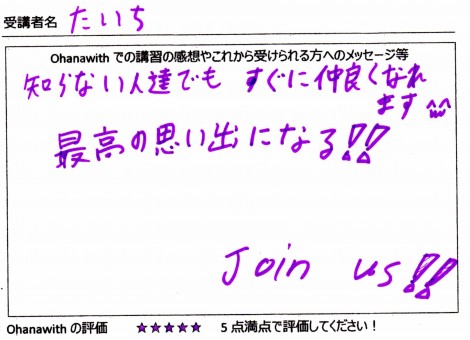 受講者名 たいち
Ohanawith での講習の感想やこれから受けられる方へのメッセージ等
知らない人達でも すぐに仲良くなれ
ます^^
最高の思い出になる!!
Join us!!
Ohanawith の評価 ★★★★★ 5点満点で評価してください!